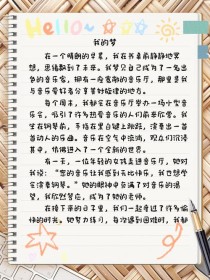 Hello~
我的梦
在一个晴朗的早晨,我在书桌前静静地冥
想,思绪飘到了未来。我梦见自己成为了一名出
色的音乐家,拥有一座宽敞的音乐厅,那里是我
与音乐爱好者分享美妙旋律的地方。
每个周末,我都会在音乐厅举办一场小型音
乐会,吸引了许多热爱音乐的人们前来欣赏。我
坐在钢琴前,手指在黑白键上跳跃,演奏出一首
首动人的乐曲。音乐在空气中流淌,观众们沉浸
其中,仿佛进入了一个全新的世界。
有一天,一位年轻的女孩走进音乐厅,她对
我说:"您的音乐让我感到无比快乐,我也想学
会演奏钢琴。"她的眼神中充满了对音乐的渴
望,我欣然答应,成为了她的老师。
在接下来的日子里,我们一起度过了许多愉
快的时光。她努力练习,每次遇到困难时,我都